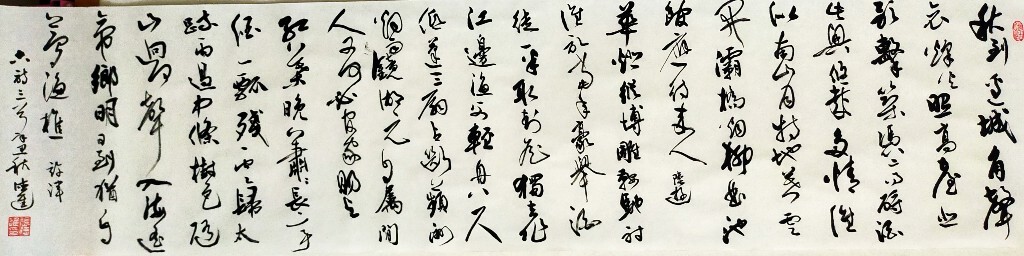 秋到邊城角聲
哀烽火照高臺悲
歌擊築憑高酹酒
此興悠哉多情誰
似南山月特地暮雲
開灞橋烟柳曲池
館應待來人 陸游
華燈縱博雕鞍馳射
誰記當年豪舉酒
徒一半取封侯獨去作
江邊漁父輕舟八尺
低篷三扇占斷蘋洲
烟雨鏡湖元自屬閒
人又何必官家賜與
紅葉晚蕭蕭長亭
酒一瓢殘雲歸太
疏雨過中條樹色隨
山迴聲入海遙
帝鄉明日到猶自
夢漁樵 許渾
古詩三首